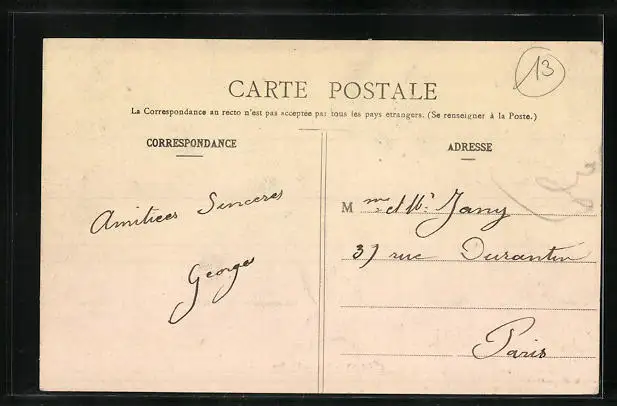 13
CARTE POSTALE
La Correspondance au recto n'est pas acceptée par tous les pays étrangers. (Se renseigner à la Poste.)
CORRESPONDANCE
ADRESSE
Amitiées Sincères
Georges
M me et Mr Jany
37 rue Durantin
Paris